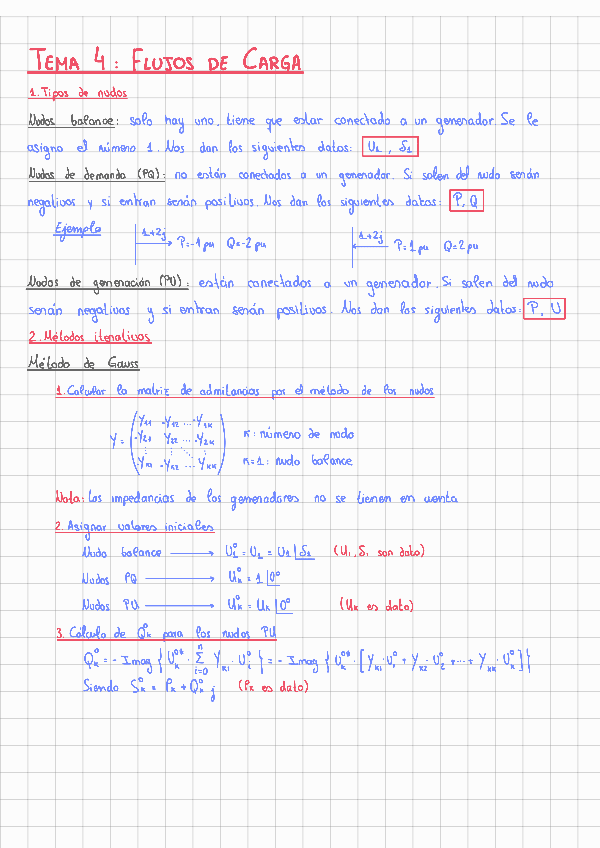 TEMA 4: FLUJOS DE CARGA
1. Tipos de nudos
Nudos balance: solo hay uno. tiene que estar conectado a un generador Se le
asigna el número 1. Nos dan los siguientes datos: U₁ , δ₁
Nudos de demanda (PQ): no están conectados a un generador. Si salen del nudo serán
negativos y si entran serán positivos. Nos dan los siguientes datos: P, Q
Ejemplo 1+2j P=-1 pu Q=-2 pu 1+2j P=1 pu Q=2 pu
Nudos de generación (PU): están conectados a un generador. Si salen del nudo
serán negativos y si entran serán positivos. Nos dan los siguientes datos: P, U
2. Métodos iterativos
Método de Gauss
1. Calcular la matriz de admitancias por el método de los nudos
Y₁₁ -Y₁₂ ... -Y₁ₖ
Y = -Y₂₁ Y₂₂ ... -Y₂ₖ K: número de nudo
-Yₖ₁ -Yₖ₂ ... Yₖₖ K=1: nudo balance
Nota: Las impedancias de los generadores no se tienen en cuenta
2. Asignar valores iniciales
Nudo balance → U₁⁰ = U₁ = U₁|δ₁ (U₁, δ₁ son dato)
Nudos PQ → Uₖ⁰ = 1|0º
Nudos PU → Uₖ⁰ = Uₖ|0º (Uₖ es dato)
3. Cálculo de Qₖ⁰ para los nudos PU
Qₖ⁰ = - Imag { Uₖ⁰* · Σ n i=0 Yₖ₁ · Uᵢ⁰ } = - Imag { Uₖ⁰* · [ Yₖ₁ · U₁⁰ + Yₖ₂ · U₂⁰ + ... + Yₖₖ · Uₖ⁰ ] }
Siendo Sₖ⁰ = Pₖ + Qₖ⁰ j (Pₖ es dato)